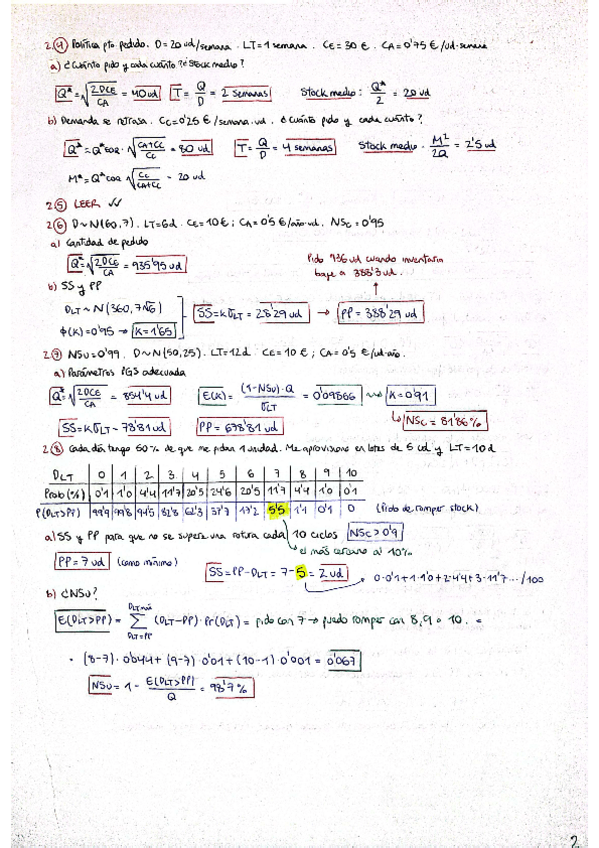 2.④ Política pto pedido. D=20 ud/semana. LT=1 semana. CE=30 €. CA=0'75 €/ud·semana
a) ¿Cuánto pido y cada cuánto? ¿Stock medio?
Q* = √(2DCE/CA) = 40 ud T = Q/D = 2 semanas Stock medio: Q*/2 = 20 ud
b) Demanda se retrasa. CC=0'25 €/semana·ud. ¿Cuánto pido y cada cuánto?
Q* = Q*EOQ · √((CA+CC)/CC) = 80 ud T = Q/D = 4 semanas Stock medio · M²/2Q = 2'5 ud
M* = Q*EOQ √(CC/(CA+CC)) - 20 ud
2.⑤ LEER ✓✓
2.⑥ D~N(60,7). LT=6d. CE=10€; CA=0'5 €/año·ud. NSc=0'95
a) Cantidad de pedido
Q* = √(2DCE/CA) = 935'95 ud
Pido 936 ud cuando inventario
baje a 388'3 ud.
b) SS y PP
DLT ~ N(360, 7√6)
Φ(K)=0'95 → K=1'65
SS=KσLT = 28'29 ud → PP = 388'29 ud
2.⑦ NSU=0'99. D~N(50,25). LT=12d. CE=10€; CA=0'5 €/ud·año.
a) Parámetros PGS adecuada
Q* = √(2DCE/CA) = 854'4 ud E(K) = (1-NSU)·Q/σLT = 0'09866 → K=0'91
↳ NSc=81'86%
SS=KσLT = 78'81 ud PP = 678'81 ud
2.⑧ Cada día tengo 50% de que me pidan 1 unidad. Me aprovisiono en lotes de 5 ud y LT=10d
DLT 0 1 2 3 4 5 6 7 8 9 10
Prob (%) 0'1 1'0 4'4 11'7 20'5 24'6 20'5 11'7 4'4 1'0 0'1
P(DLT>PP) 99'9 99'8 94'5 82'8 62'3 37'7 17'2 5'5 1'1 0'1 0 (Prob de romper stock)
a) SS y PP para que no se supere una rotura cada 10 ciclos NSc>0'9
↳ el más cercano al 10%
PP = 7 ud (como mínimo) SS=PP-DLT = 7-5 = 2 ud
0·0'1+1·1'0+2·4'4+3·11'7.../100
b) ¿NSU?
E(DLT>PP) = Σ DLT máx DLT=PP (DLT-PP)·Pr(DLT) = pido con 7 → puedo romper con 8, 9 o 10. =
= (8-7)·0'044+(9-7)·0'01+(10-7)·0'001 = 0'067
NSU = 1 - E(DLT>PP)/Q = 98'7%
2